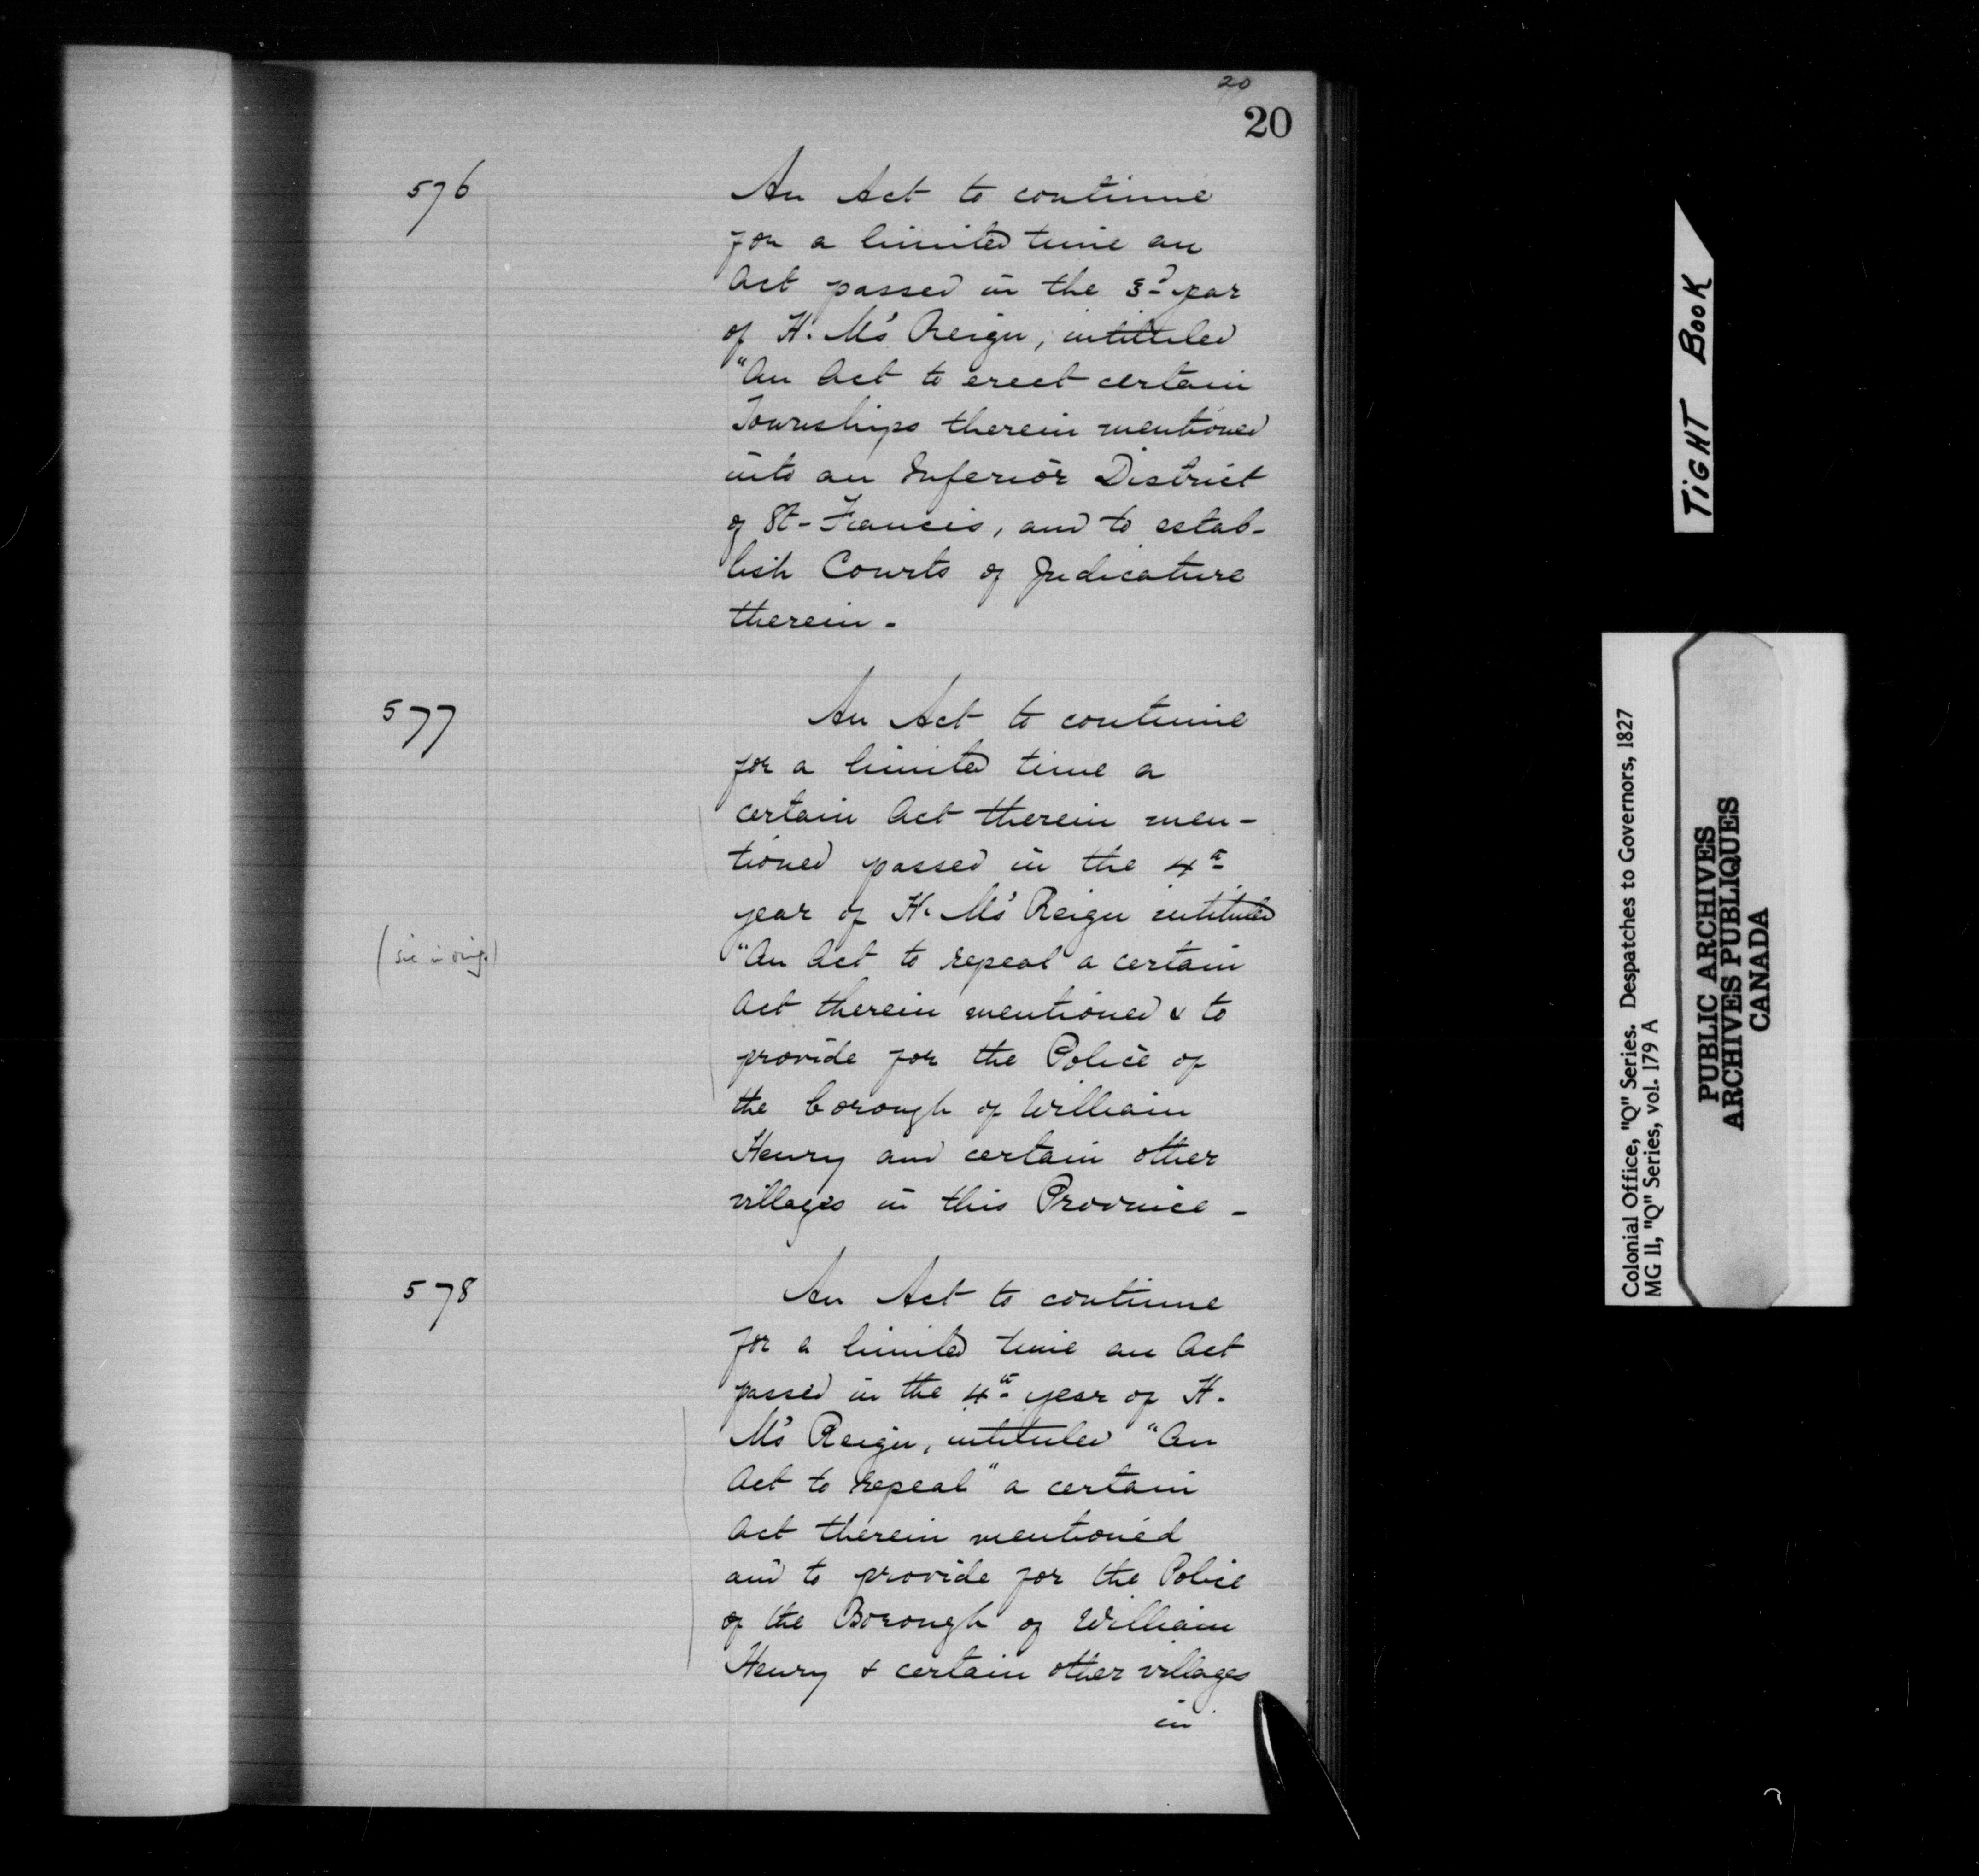 20
20
576
An Act to continue
for a limited time an
Act passed in the 3d year
of H. M's Reign, intituled
"An Act to erect certain
Townships therein mentioned
into an Inferior District
of St-Francis, and to estab-
lish Courts of Judicature
therein.
577
An Act to continue
for a limited time a
certain Act therein men-
tioned passed in the 4th
year of H. M's Reign intituled
(sic in orig.)
"An Act to repeal a certain
Act therein mentioned & to
provide for the Police of
the borough of William
Henry and certain other
villages in this Province -
578
An Act to continue
for a limited time an Act
passed in the 4th year of H.
M's Reign, intituled "An
Act to repeal" a certain
Act therein mentioned
and to provide for the Police
of the Borough of William
Henry & certain other villages
in
TIGHT BOOK
Colonial Office, "Q" Series. Despatches to Governors, 1827
MG 11, "Q" Series, vol. 179 A
PUBLIC ARCHIVES
ARCHIVES PUBLIQUES
CANADA